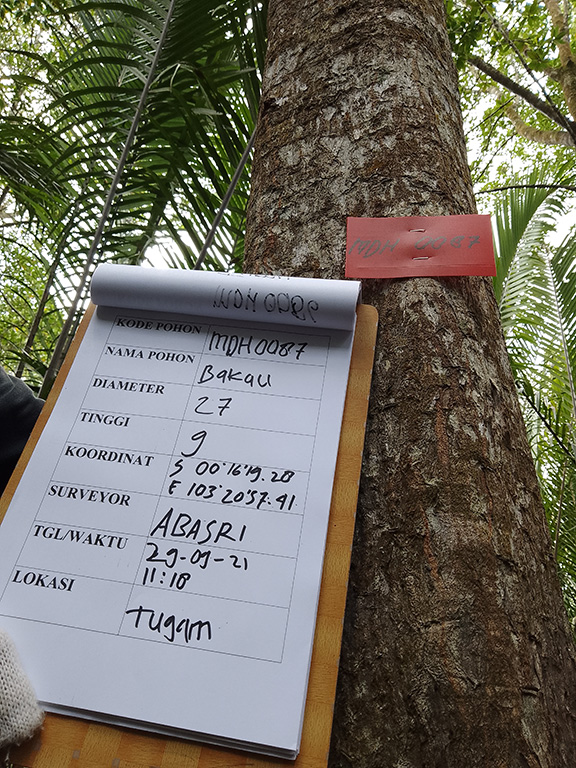 MDH 0087
MDH 0086
KODE POHON MDH0087
NAMA POHON Bakau
DIAMETER 27
TINGGI 9
KOORDINAT S 00°16'19.28
E 103°20'57.41
SURVEYOR ABASRI
TGL/WAKTU 29-09-21
11:18
LOKASI Tugam